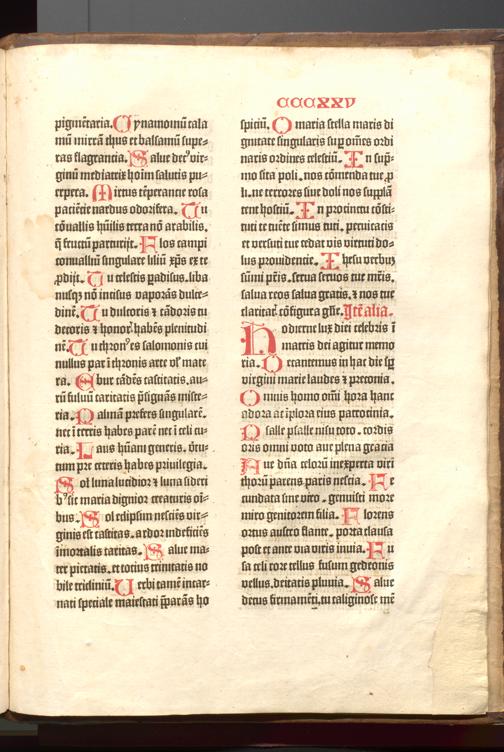 CCCXXV
pigmētaria. Cynamomū cala
mū mirrā thus et balsamū supe-
ras flagrancia. Salue decꝰ vir-
ginū mediatrix hoīm salutis pu-
erpera. Mirtus tēperantie rosa
paciēcie nardus odorifera. Tu
cōuallis hūilis terra nō arabilis,
q̄ fructū parturijt. Flos campi
conualliū singulare liliū xp̄s ex te
ꝓdijt. Tu celestis padisus. liba
nusqꝫ nō incisus vaporās dulce-
dinē. Tu dulcoris ⁊ cādoris tu
decoris ⁊ honorꝭ habēs plenitudi
nē. Tu thronꝰ es salomonis cui
nullus par ī thronis arte vel mate
ra. Ebur cādēs castitatis. au-
rū fuluū caritatis p̄signās miste-
ria. Palmā prefers singularē.
nec ī terris habes parē nec ī celi cu-
ria. Laus hūani generis. ꝟtu-
tum pre ceteris habes priuilegia.
Sol luna lucidior ⁊ luna sideri
bꝰ sic maria dignior creaturis oī-
bus. Sol eclipsim nesciēs vir-
ginis est castitas. ardor indeficiēs
īmortalis caritas. Salue ma-
ter pietatis. et totius trinitatis no
bile tricliniū. Uerbi tamē incar-
nati speciale maiestati p̄parās ho
spiciū. O maria stella maris di
gnitate singularis sup om̄es ordi
naris ordines celestiū. In sup̄-
mo sita poli. nos cōmenda tue ꝓ
li. ne terrores siue doli nos supplā
tent hostiū. In procinctu cōsti-
tuti te tuēte simus tuti. peruicacis
et versuti tue cedat vis virtuti do-
lus prouidentie. Ihesu verbuꝫ
sūmi pr̄is. serua seruos tue mr̄is.
salua reos salua gratis. ⁊ nos tue
claritatꝭ cōfigura gl̄ie. Itē alia.
Hodierne lux diei celebris ī
matris dei agitur memo
ria. Decantemus in hac die sp̄
virgini marie laudes ⁊ preconia.
Omnis homo om̄i hora hanc
adora ac īplora eius patrocinia.
Psalle psalle nisu toto. cordis
oris omni voto aue plena gracia
Aue dn̄a celorū inexperta viri
thorū parens paris nescia. Fe
cundata sine viro. genuisti more
miro genitorem filia. Florens
ortus austro flante. porta clausa
post et ante via viris inuia. Fu
sa celi ror tellus fusum gedeonis
vellus. deitatis pluuia. Salue
decus firmamēti. tu caliginose mē